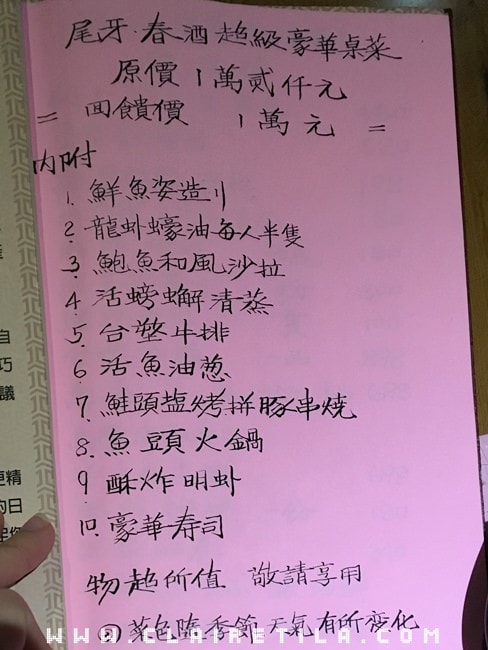 尾牙.春酒超級豪華桌菜
原價1萬貳仟元
= 回饋價 1萬元 =
內附
1. 鮮魚姿造り
2. 龍虾蠔油每人半隻
3. 鮑魚和風沙拉
4. 活螃蟹清蒸
5. 台塑牛排
6. 活魚油葱
7. 鮭頭塩烤拼豚串燒
8. 魚頭火鍋
9. 酥炸明虾
10. 豪華寿司
物超所值 敬請享用
菜色隨季節天氣有所变化
自
巧
議
更精
的日
WWW.CLAIRETILA.COM